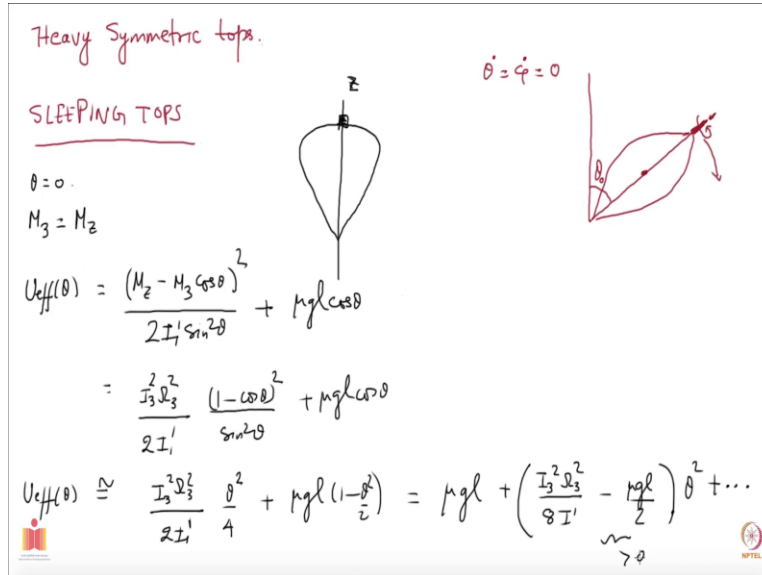 Heavy Symmetric tops.
θ̇ = φ̇ = 0
SLEEPING TOPS
z
θ₀
θ = 0.
M₃ = M_z
U_eff(θ) = (M_z - M₃ cosθ)² / 2I₁' sin²θ + μgl cosθ
= I₃²Ω₃² / 2I₁' (1 - cosθ)² / sin²θ + μgl cosθ
U_eff(θ) ≅ I₃²Ω₃² / 2I₁' θ²/4 + μgl (1 - θ²/2) = μgl + (I₃²Ω₃² / 8I' - μgl/2) θ² + ...
> 0
NPTEL